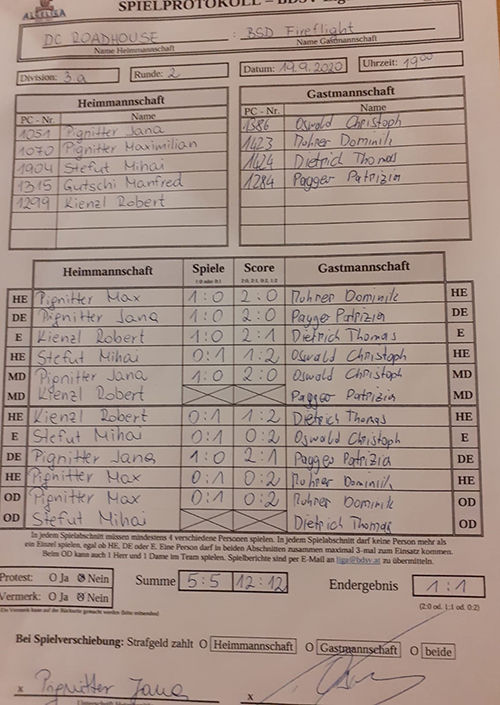 SPIELPROTOKOLL – BDSV Liga
DC ROADHOUSE : BSD Fireflight
Name Heimmannschaft Name Gastmannschaft
Division: 3.a Runde: 2 Datum: 19.9.2020 Uhrzeit: 19⁰⁰
Heimmannschaft Gastmannschaft
PC - Nr. Name PC - Nr. Name
1051 Pignitter Jana 1386 Oswald Christoph
1070 Pignitter Maximilian 1423 Ruhrer Dominik
1904 Stefut Mihai 1424 Dietrich Thomas
1315 Gutschi Manfred 1284 Pagger Patrizia
1299 Kienzl Robert
Heimmannschaft Spiele 1:0 oder 0:1 Score 2:0, 2:1, 0:2, 1:2 Gastmannschaft
HE Pignitter Max 1:0 2:0 Ruhrer Dominik HE
DE Pignitter Jana 1:0 2:0 Pagger Patrizia DE
E Kienzl Robert 1:0 2:1 Dietrich Thomas E
HE Stefut Mihai 0:1 1:2 Oswald Christoph HE
MD Pignitter Jana 1:0 2:0 Oswald Christoph MD
MD Kienzl Robert Pagger Patrizia MD
HE Kienzl Robert 0:1 1:2 Dietrich Thomas HE
E Stefut Mihai 0:1 0:2 Oswald Christoph E
DE Pignitter Jana 1:0 2:1 Pagger Patrizia DE
HE Pignitter Max 0:1 0:2 Ruhrer Dominik HE
OD Pignitter Max 0:1 0:2 Ruhrer Dominik OD
OD Stefut Mihai Dietrich Thomas OD
In jedem Spielabschnitt müssen mindestens 4 verschiedene Personen spielen. In jedem Spielabschnitt darf keine Person mehr als
ein Einzel spielen, egal ob HE, DE oder E. Eine Person darf in beiden Abschnitten zusammen maximal 3-mal zum Einsatz kommen.
Beim OD kann auch 1 Herr und 1 Dame im Team spielen. Spielberichte sind per E-Mail an liga@bdvv.at zu übermitteln.
Protest: O Ja O Nein Summe 5:5 12:12 Endergebnis 1:1
Vermerk: O Ja O Nein (2:0 od. 1:1 od. 0:2)
Ein Vermerk kann auf der Rückseite gemacht werden (bitte umblättern)
Bei Spielverschiebung: Strafgeld zahlt O Heimmannschaft O Gastmannschaft O beide
x Pignitter Jana x